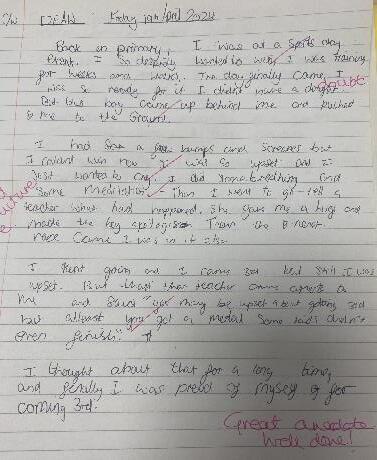 C/W [DEAR] Friday 19th April 2024
Back in primary, I was at a sports day
event. I so despretly wanted to win, I was training
for weeks and weeks. The day finally came I
was so ready for it I didn't have a doubt
But this boy came up behind me and pushed
me to the Ground.
I had got a few bumps and scraches but
I couldnt win now I was so upset and I
just wanted to cry I did some breathing and
some meditation Then I went to tell a
teacher what had happened. She gave me a hug and
made the boy apologise Then the next
race came I was in it also
I kept going and I came 3rd but still I was
upset. But that teacher came over to
me and said "you may be upset about getting 3rd
but atleast you got a medal some kids didn't
even finish."
I thought about that for a long time,
and finally I was proud of myself for
coming 3rd.
Great anecdote
Well done!